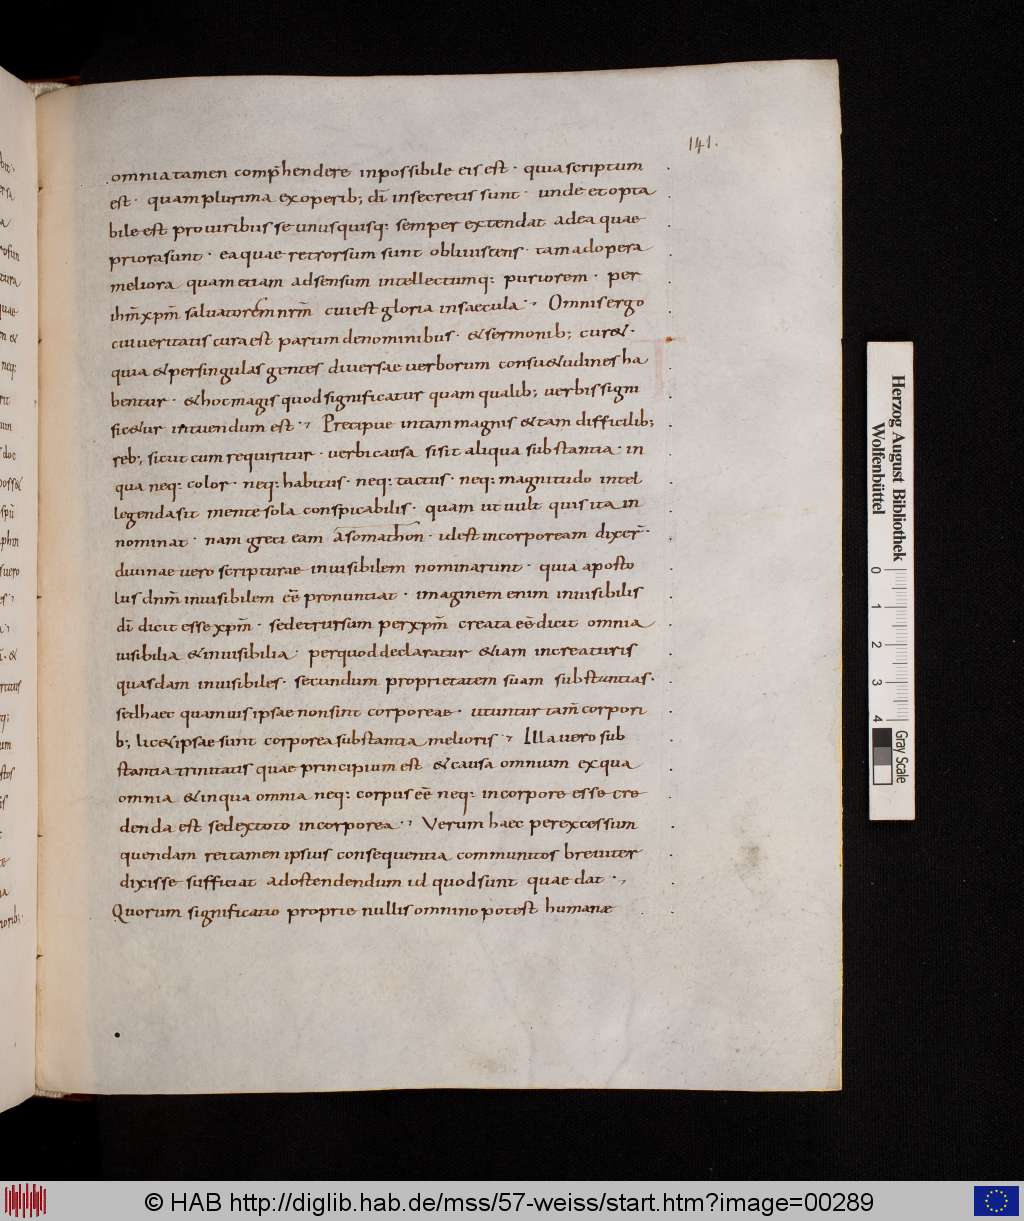 141.
omnia tamen comp̄hendere inpossibile eis est · quia scriptum
est · quam plurima ex operib; dī in secretis sunt · unde et opta
bile est pro viribus se unusquisq: semper extendat ad ea quae
priora sunt · ea quae retrorsum sunt obliviscens · tam ad opera
meliora quam etiam ad sensum intellectumq: puriorem · per
ihm̄ xpm̄ salvatorem nrm̄ cui est gloria in saecula · Omnis ergo
cui veritatis cura est parum de nominibus · & sermonib; cur& ·
quia & per singulas gentes diversae verborum consu&udines ha
bentur · & hoc magis quod significatur quam qualib; verbis signi
fic&ur intuendum est · Precipue in tam magnis & tam difficilib;
reb; sicut cum requiritur · verbi causa si sit aliqua substantia · in
qua neq: color · neq: habitus · neq: tactus · neq: magnitudo intel
legenda sit mente sola conspicabilis · quam ut vult quis ita in
nominat · nam greci eam asomathon · id est incorpoream dixer̄ ·
divinae vero scripturae invisibilem nominarunt · quia aposto
lus dnm̄ invisibilem eē pronuntiat · imaginem enim invisibilis
dī dicit esse xpm̄ · sed et rursum per xpm̄ creata eē dicit omnia
visibilia & invisibilia · per quod declaratur &iam in creaturis
quasdam invisibiles · secundum proprietatem suam substantias ·
sed haec quamvis ipsae non sint corporeae · utuntur tam̄ corpori
b; lic& ipsae sunt corporea substantia melioris · Illa vero sub
stantia trinitatis quae principium est & causa omnium ex qua
omnia & in qua omnia neq: corpus eē neq: in corpore esse cre
denda est sed ex toto incorporea · Verum haec per excessum
quendam rei tamen ipsius consequentia communitos breviter
dixisse sufficiat ad ostendendum id quod sunt quaedat ·
Quorum significatio proprie nullis omnino potest humanæ
Herzog August Bibliothek
Wolfenbüttel
0 1 2 3 4
Gray Scale
© HAB http://diglib.hab.de/mss/57-weiss/start.htm?image=00289